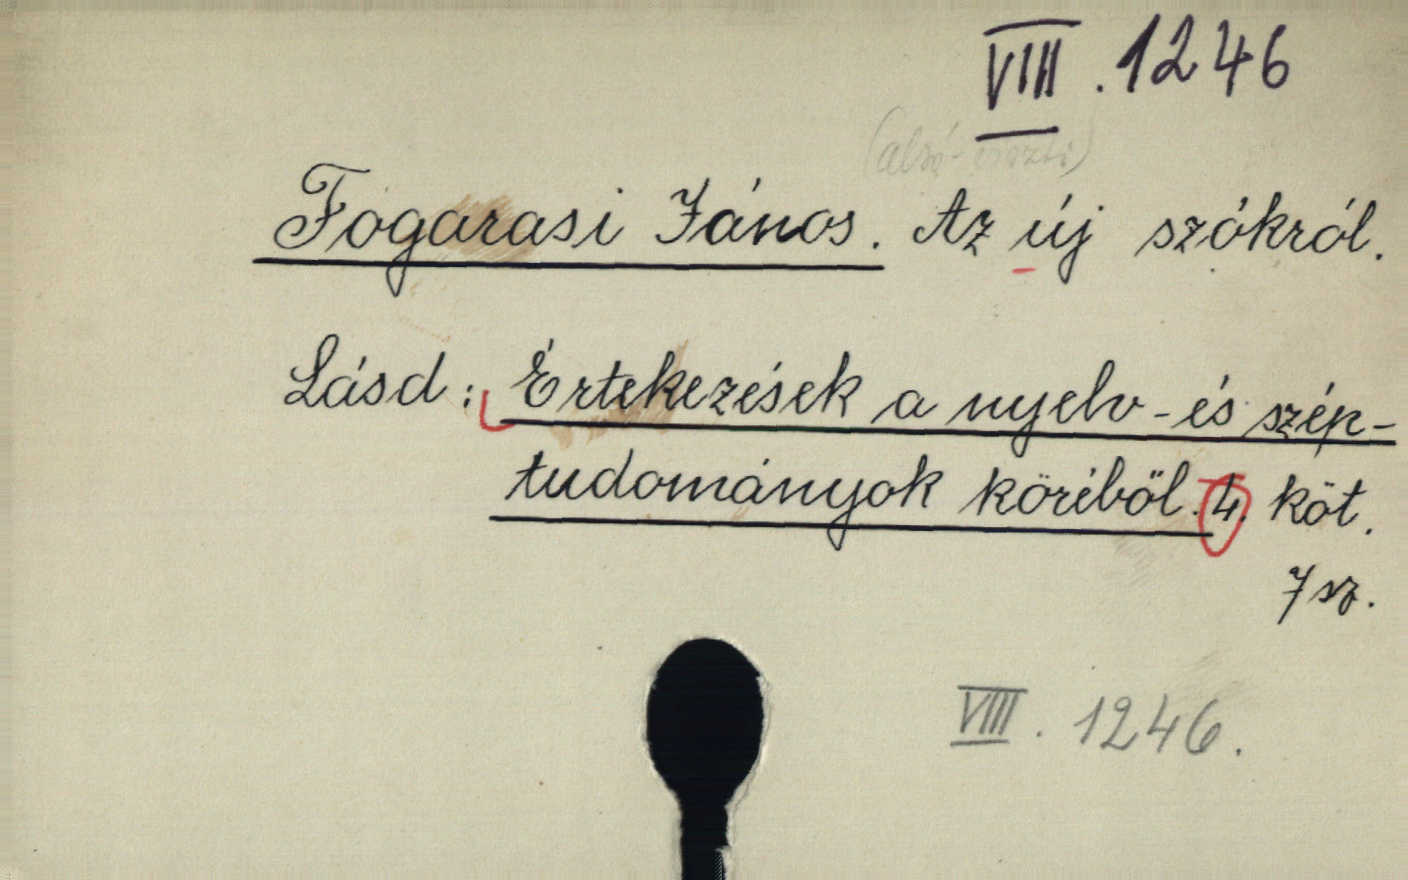 VIII. 1246
Fogarasi János. Az új szókról.
Lásd: Értekezések a nyelv- és szép-
tudományok köréből. 4. köt.
7 sz.
VIII. 1246.